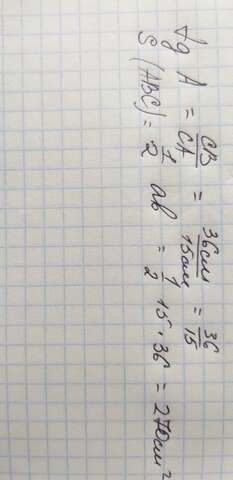 tg A = CB/CA = 36см/15см = 36/15
S (ABC) = 1/2 ab = 1/2 15 · 36 = 270см²